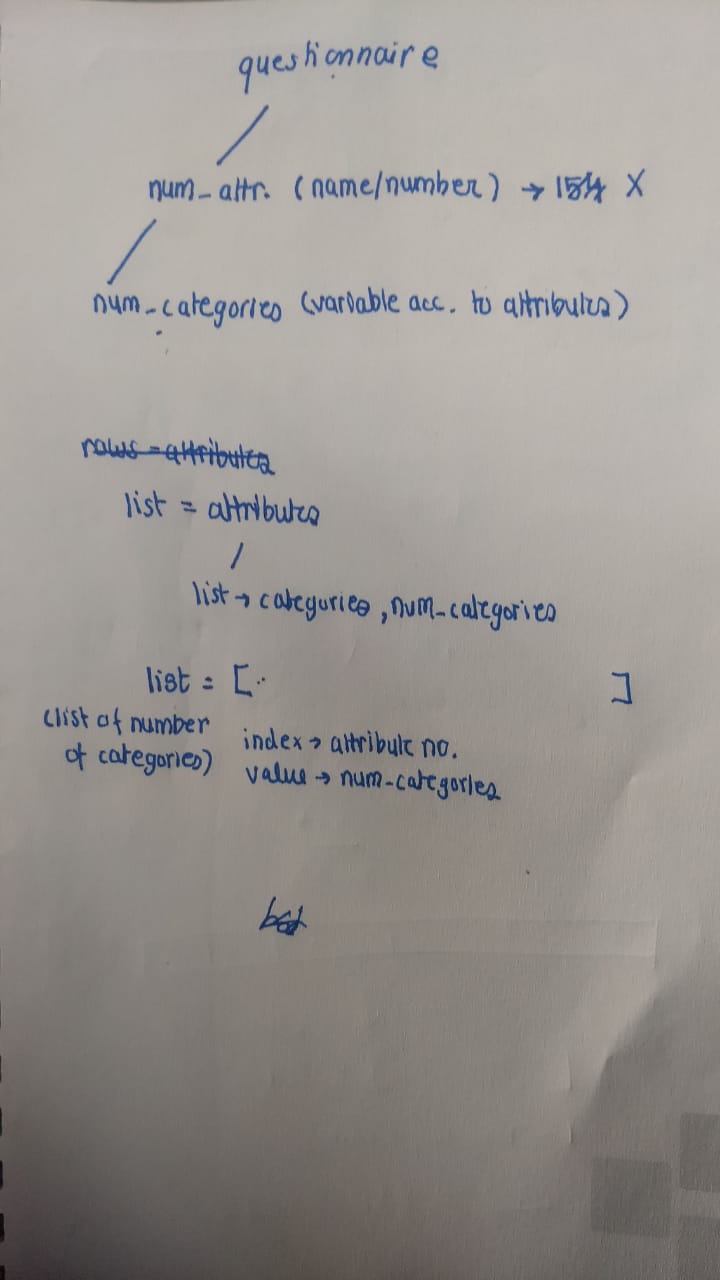 questionnaire
num_attr. (name/number) → X
num-categories (variable acc. to attributes)
rows = attributes
list = attributes
list → categories, num-categories
list = [.. ]
(list of number
of categories)
index → attribute no.
value → num-categories